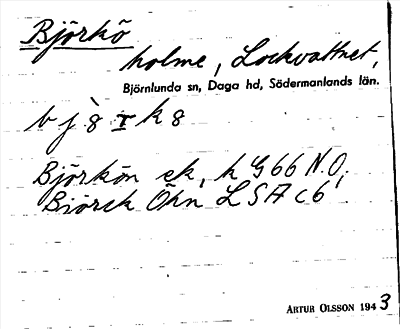 Björkö
holme, Lockvattnet,
Björnlunda sn, Daga hd, Södermanlands län.
Björkön ek, h G66 N.O,
Biörck Öhn LSA c6
ARTUR OLSSON 1943